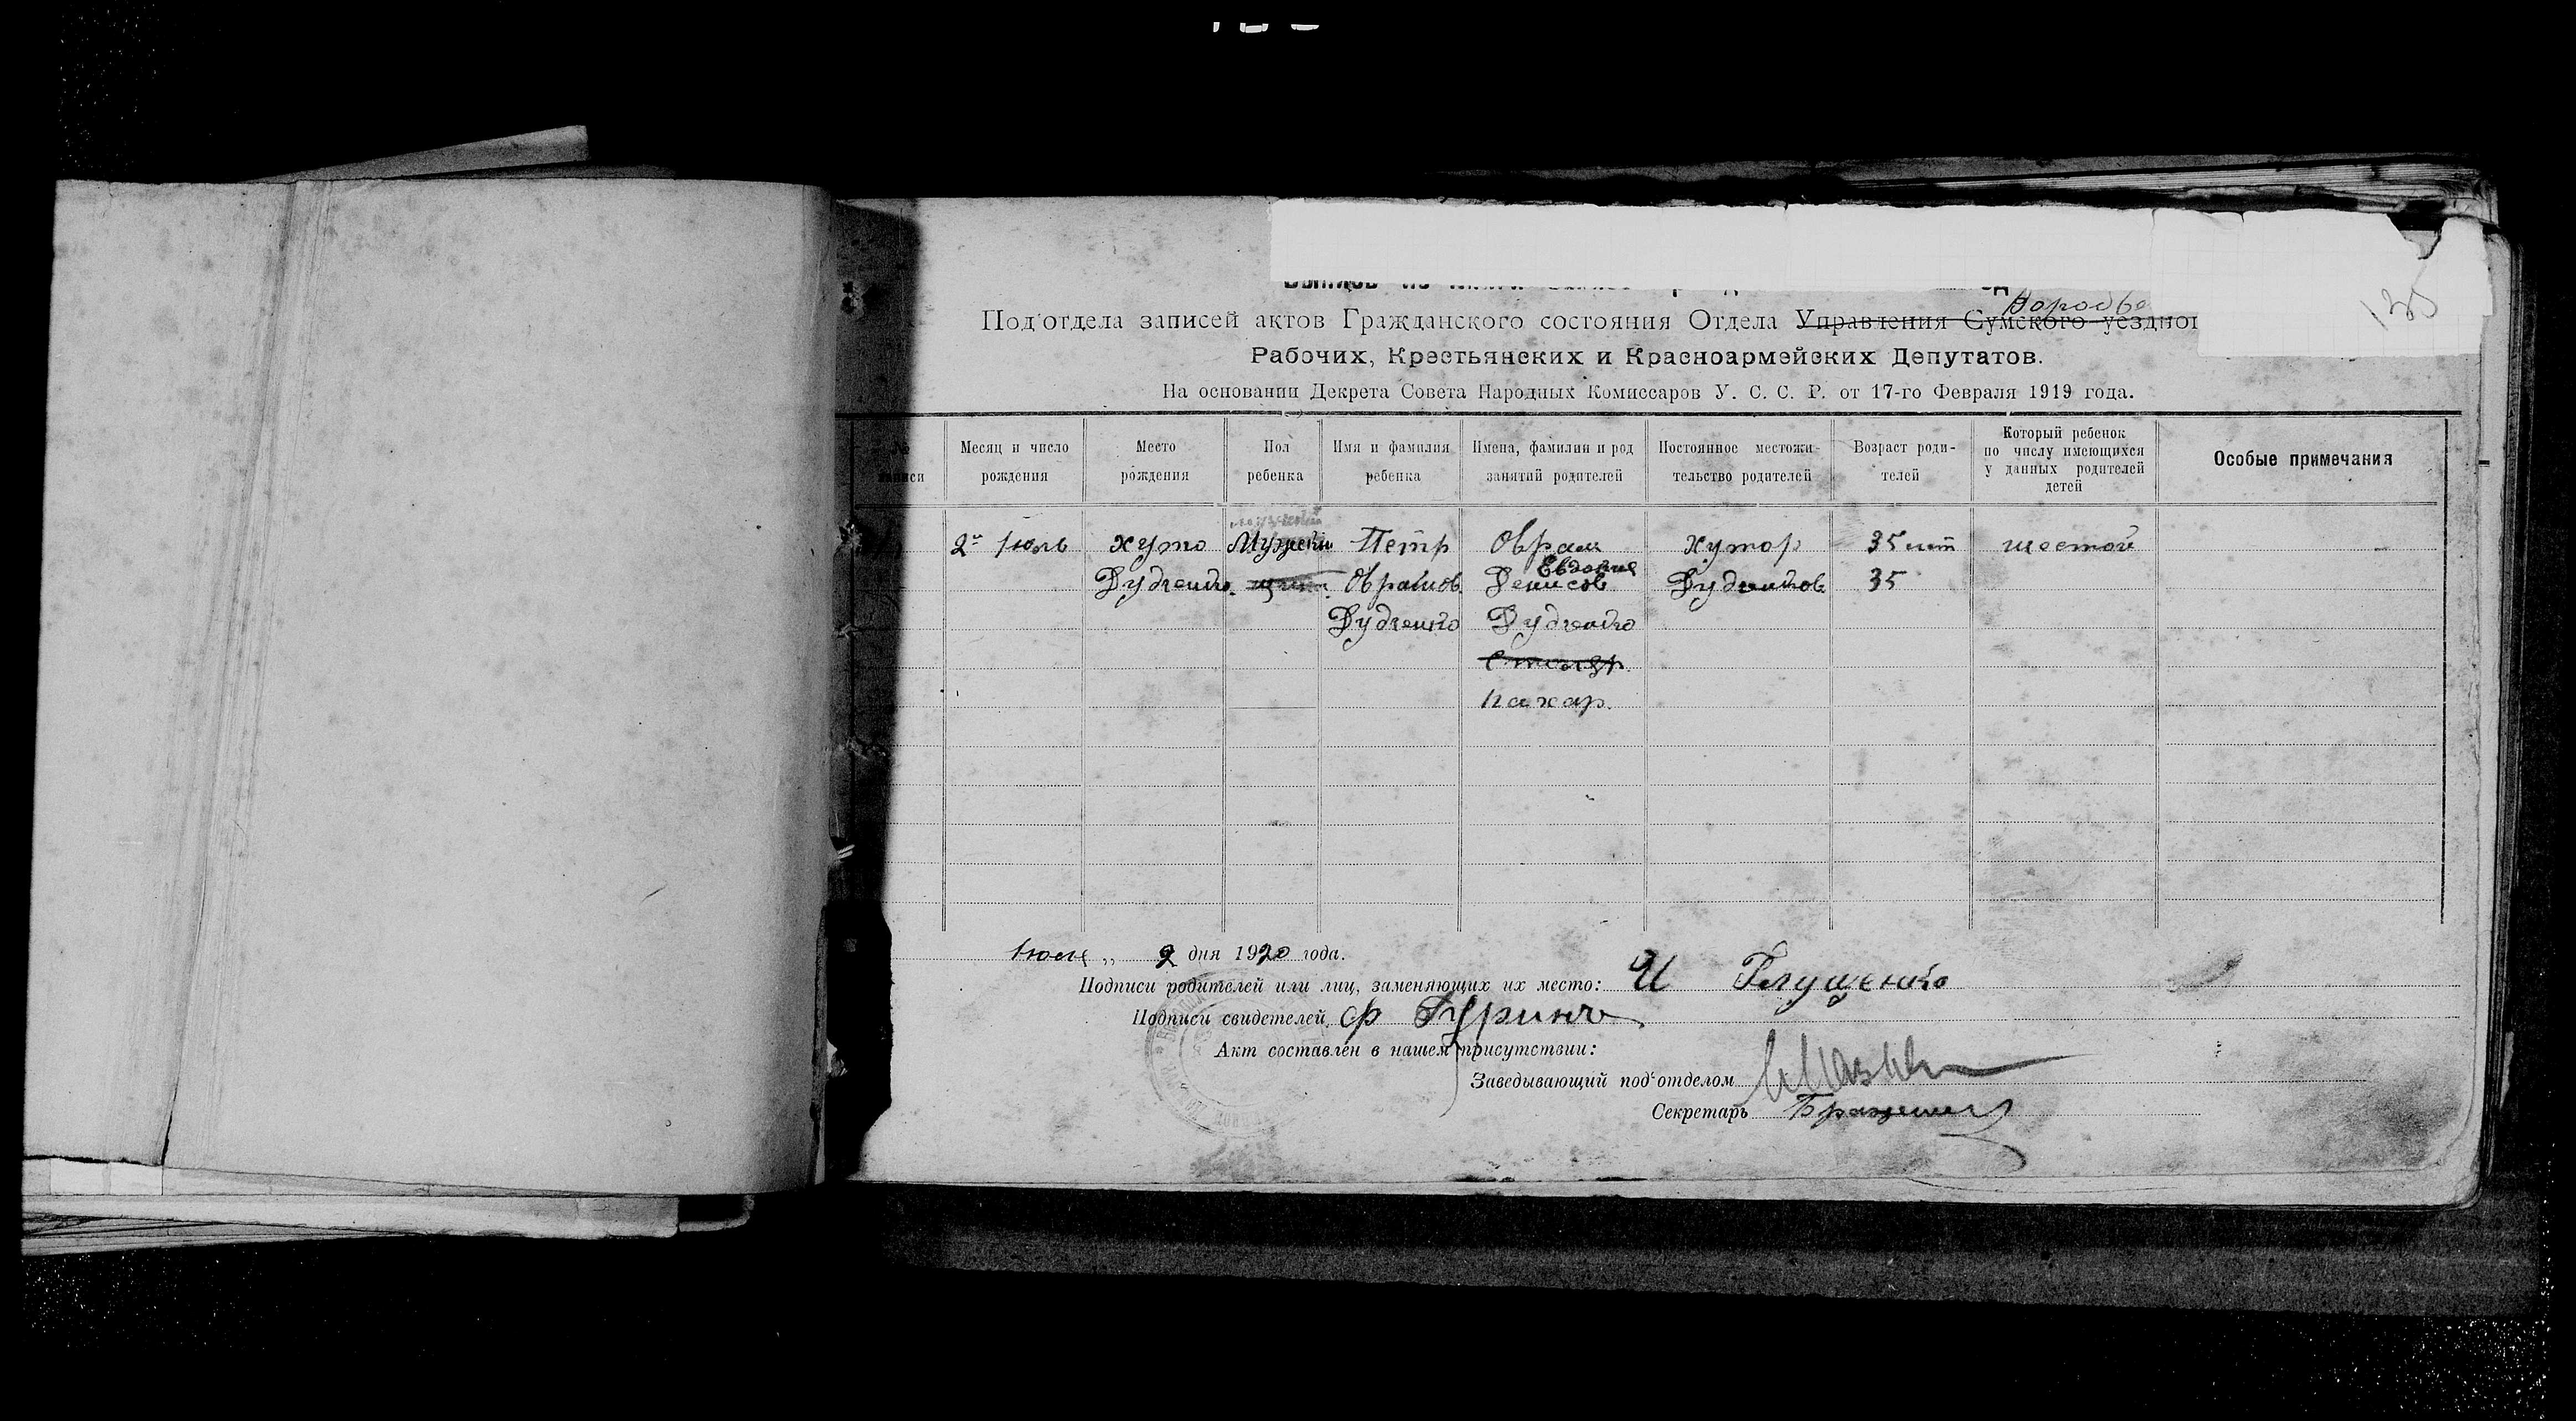 135
Под'отдела записей актов Гражданского состояния Отдела Управления Сумского уездног
Рабочих, Крестьянских и Красноармейских Депутатов.
На основании Декрета Совета Народных Комиссаров У. С. С. Р. от 17-го Февраля 1919 года.
№ записи
Месяц и число рождения
Место рождения
Пол ребенка
Имя и фамилия ребенка
Имена, фамилии и род занятий родителей
Постоянное местожительство родителей
Возраст родителей
Который ребенок по числу имеющихся у данных родителей детей
Особые примечания
2го Июль хуто Мужски Петр Оврам Хутор 35 лет шестой
Евдокия
Дудченко Оврамов Денисов Дудченков 35
Дудченко Дудченко
пахар.
Июля " 2 дня 1920 года.
Подписи родителей или лиц, заменяющих их место: И Глущенко
Подписи свидетелей ф Гуринъ
Акт составлен в нашем присутствии:
Заведывающий под'отделом
Секретарь